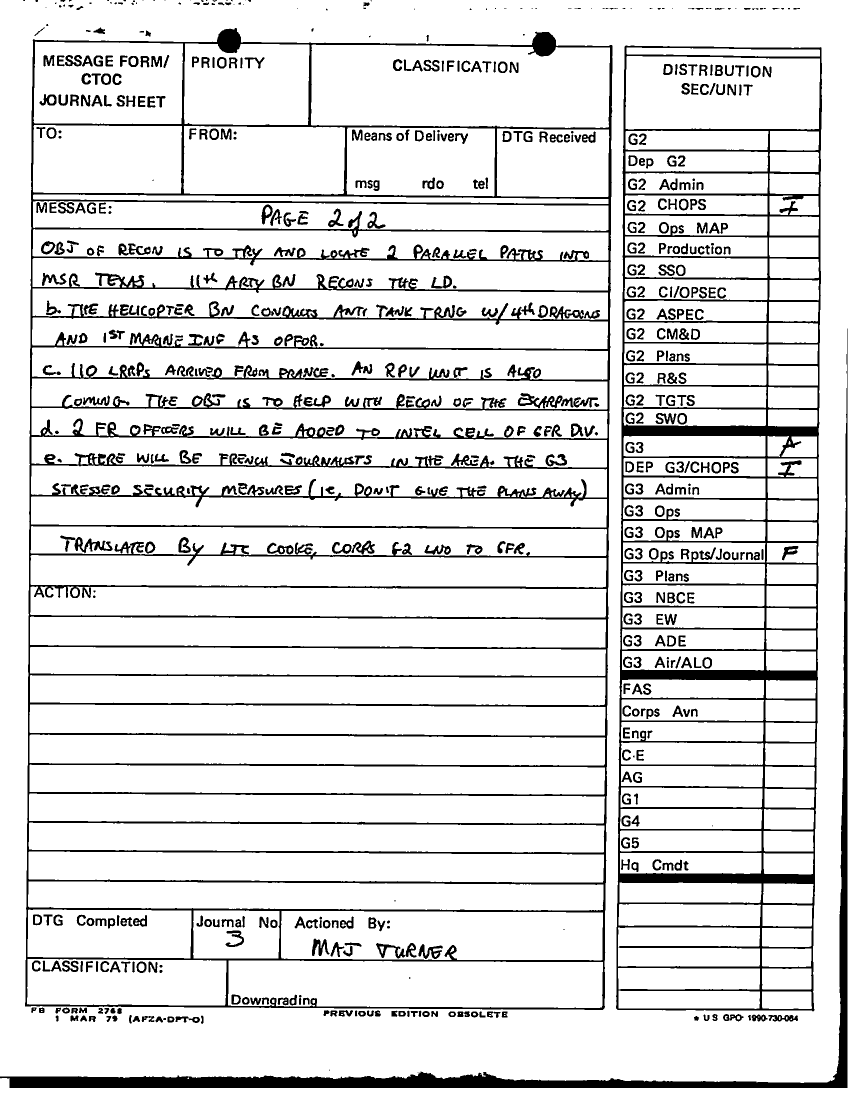 MESSAGE FORM/
CTOC
JOURNAL SHEET
PRIORITY
CLASSIFICATION
TO:
FROM:
Means of Delivery
msg rdo tel
DTG Received
MESSAGE:
PAGE 2 of 2
OBJ OF RECON IS TO TRY AND LOCATE 2 PARALLEL PATHS INTO
MSR TEXAS. 11th ARTY BN RECONS THE LD.
b. THE HELICOPTER BN CONDUCTS ANTI TANK TRNG W/ 4th DRAGOONS
AND 1ST MARINE INF AS OPFOR.
c. 110 LRRPs ARRIVED FROM FRANCE. AN RPV UNIT IS ALSO
COMING. THE OBJ IS TO HELP WITH RECON OF THE ESCARPMENT.
d. 2 FR OFFICERS WILL BE ADDED TO INTEL CELL OF 6FR DIV.
e. THERE WILL BE FRENCH JOURNALISTS IN THE AREA. THE G3
STRESSED SECURITY MEASURES (ie, DON'T GIVE THE PLANS AWAY)
TRANSLATED BY LTC COOKE, CORPS G2 LNO TO 6FR.
ACTION:
DTG Completed
Journal No
3
Actioned By:
MAJ TURNER
CLASSIFICATION:
Downgrading
FB FORM 2768
1 MAR 79 (AFZA-DPT-O)
PREVIOUS EDITION OBSOLETE
DISTRIBUTION
SEC/UNIT
G2
Dep G2
G2 Admin
G2 CHOPS I
G2 Ops MAP
G2 Production
G2 SSO
G2 CI/OPSEC
G2 ASPEC
G2 CM&D
G2 Plans
G2 R&S
G2 TGTS
G2 SWO
G3 A
DEP G3/CHOPS I
G3 Admin
G3 Ops
G3 Ops MAP
G3 Ops Rpts/Journal F
G3 Plans
G3 NBCE
G3 EW
G3 ADE
G3 Air/ALO
FAS
Corps Avn
Engr
C-E
AG
G1
G4
G5
Hq Cmdt
* U S GPO- 1990-730-064